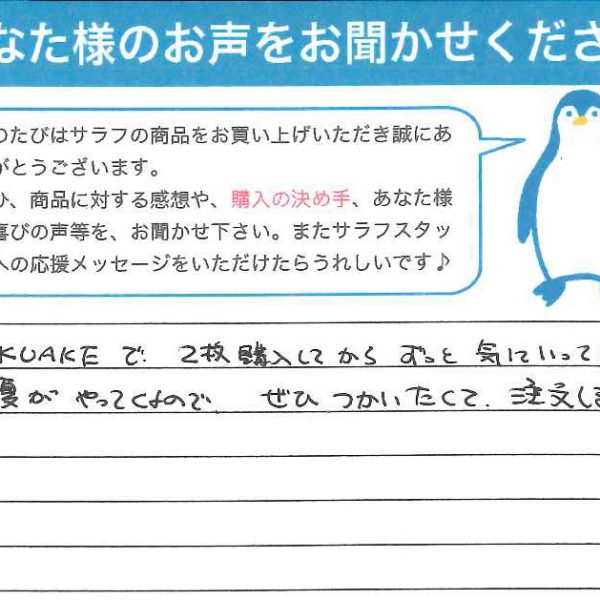 なた様のお声をお聞かせくださ
のたびはサラフの商品をお買い上げいただき誠にあ
がとうございます。
ひ、商品に対する感想や、購入の決め手、あなた様
喜びの声等を、お聞かせ下さい。またサラフスタッ
への応援メッセージをいただけたらうれしいです♪
KUAKEで、2枚購入してからずっと気にいって
夏がやってくるので、ぜひつかいたくて、注文しま